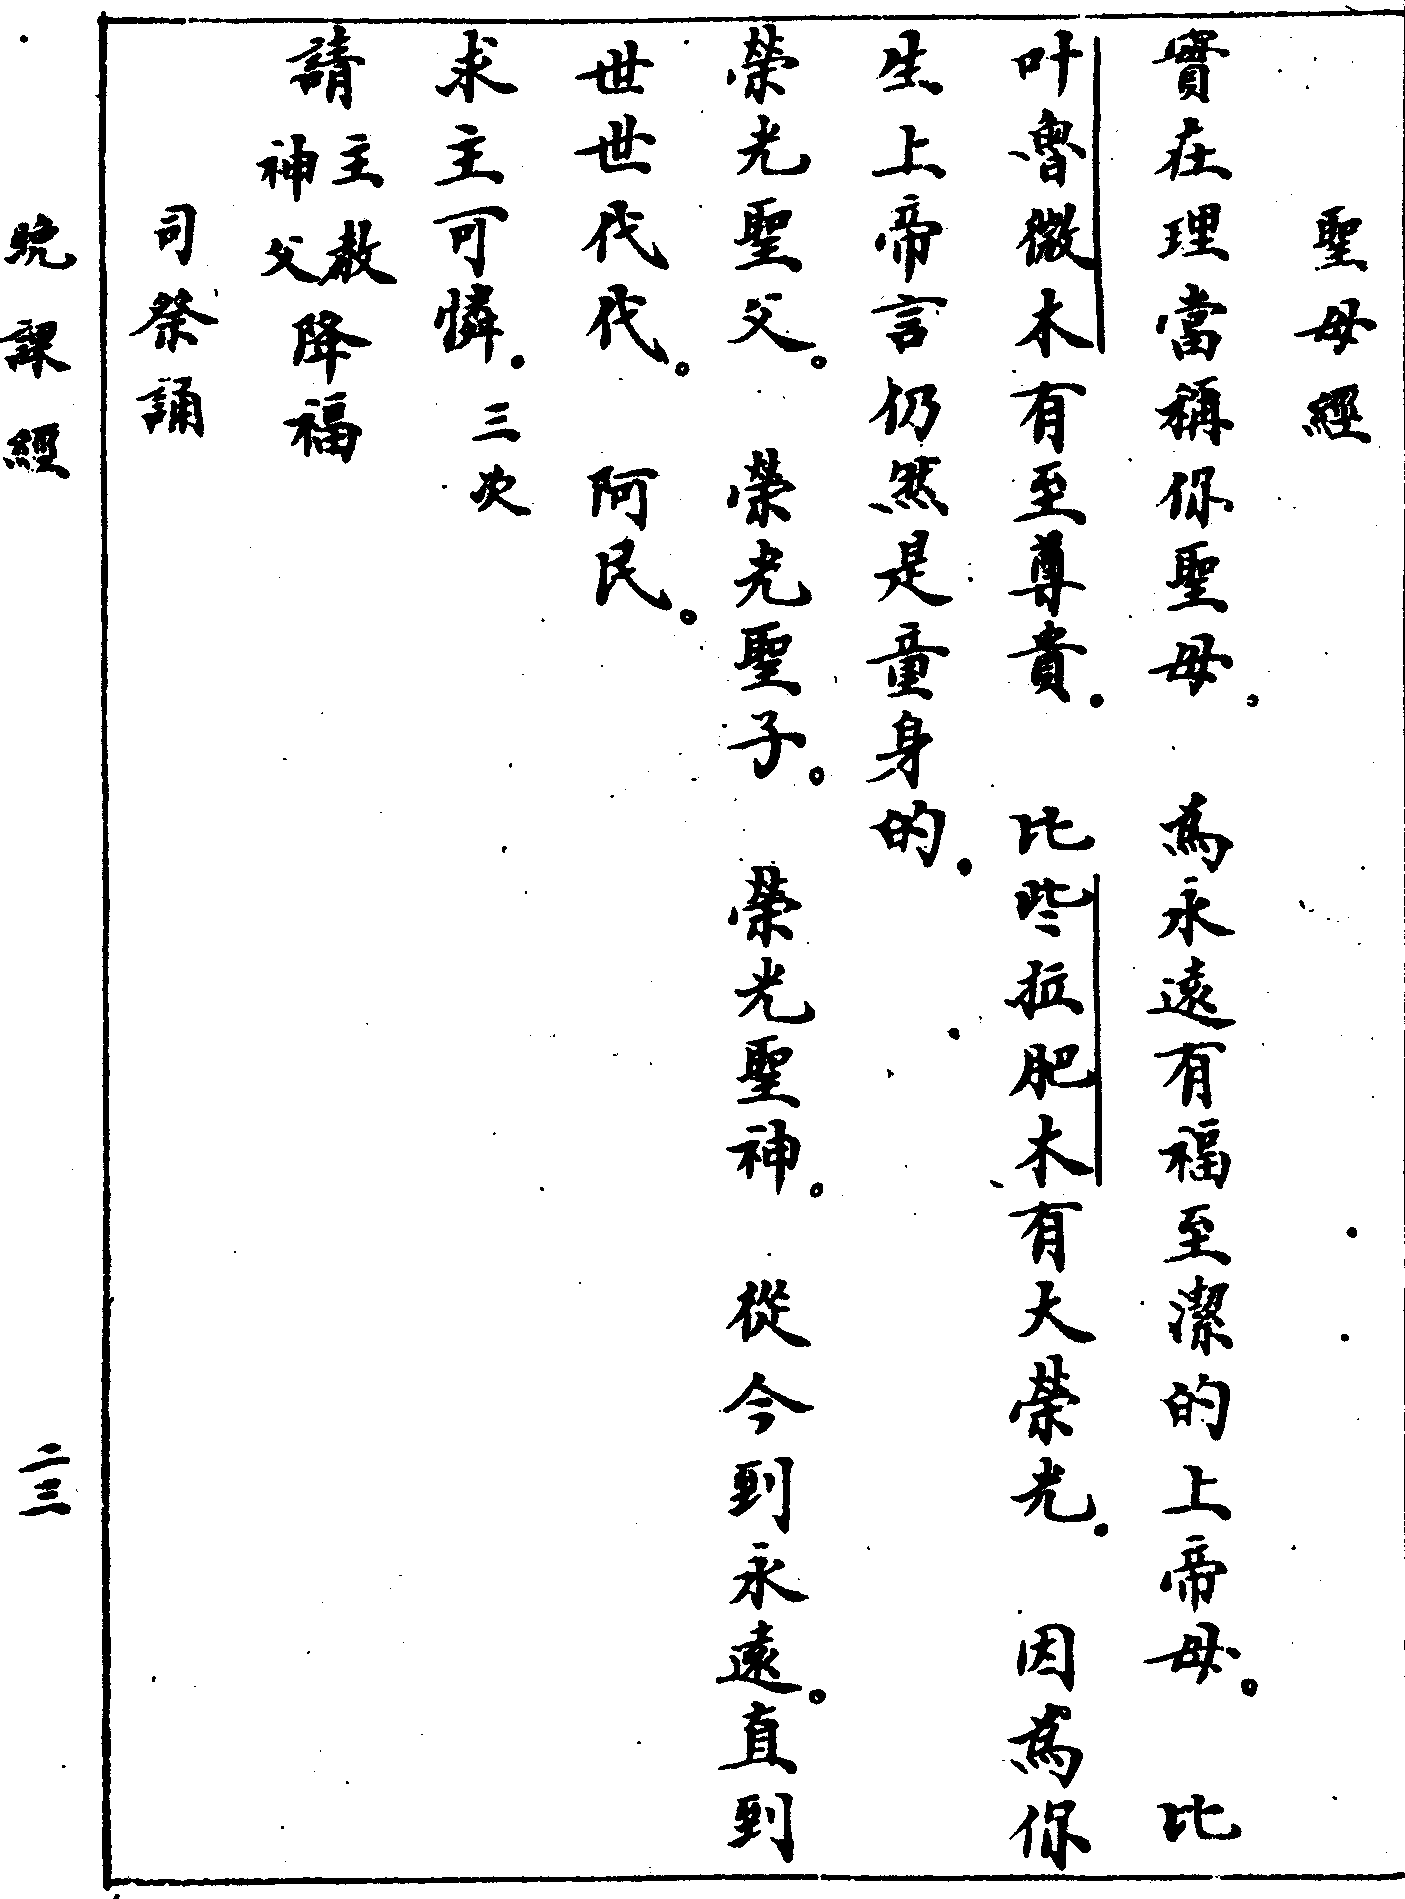 聖母經
實在理當稱你聖母。 為永遠有福至潔的上帝母。 比
叶魯微木有至尊貴。 比些拉肥木有大榮光。 因為你
生上帝言仍然是童身的。
榮光聖父。 榮光聖子。 榮光聖神。 從今到永遠。直到
世世代代。 阿民。
求主可憐。三次
請主教神父降福
司祭誦
晚課經
二三